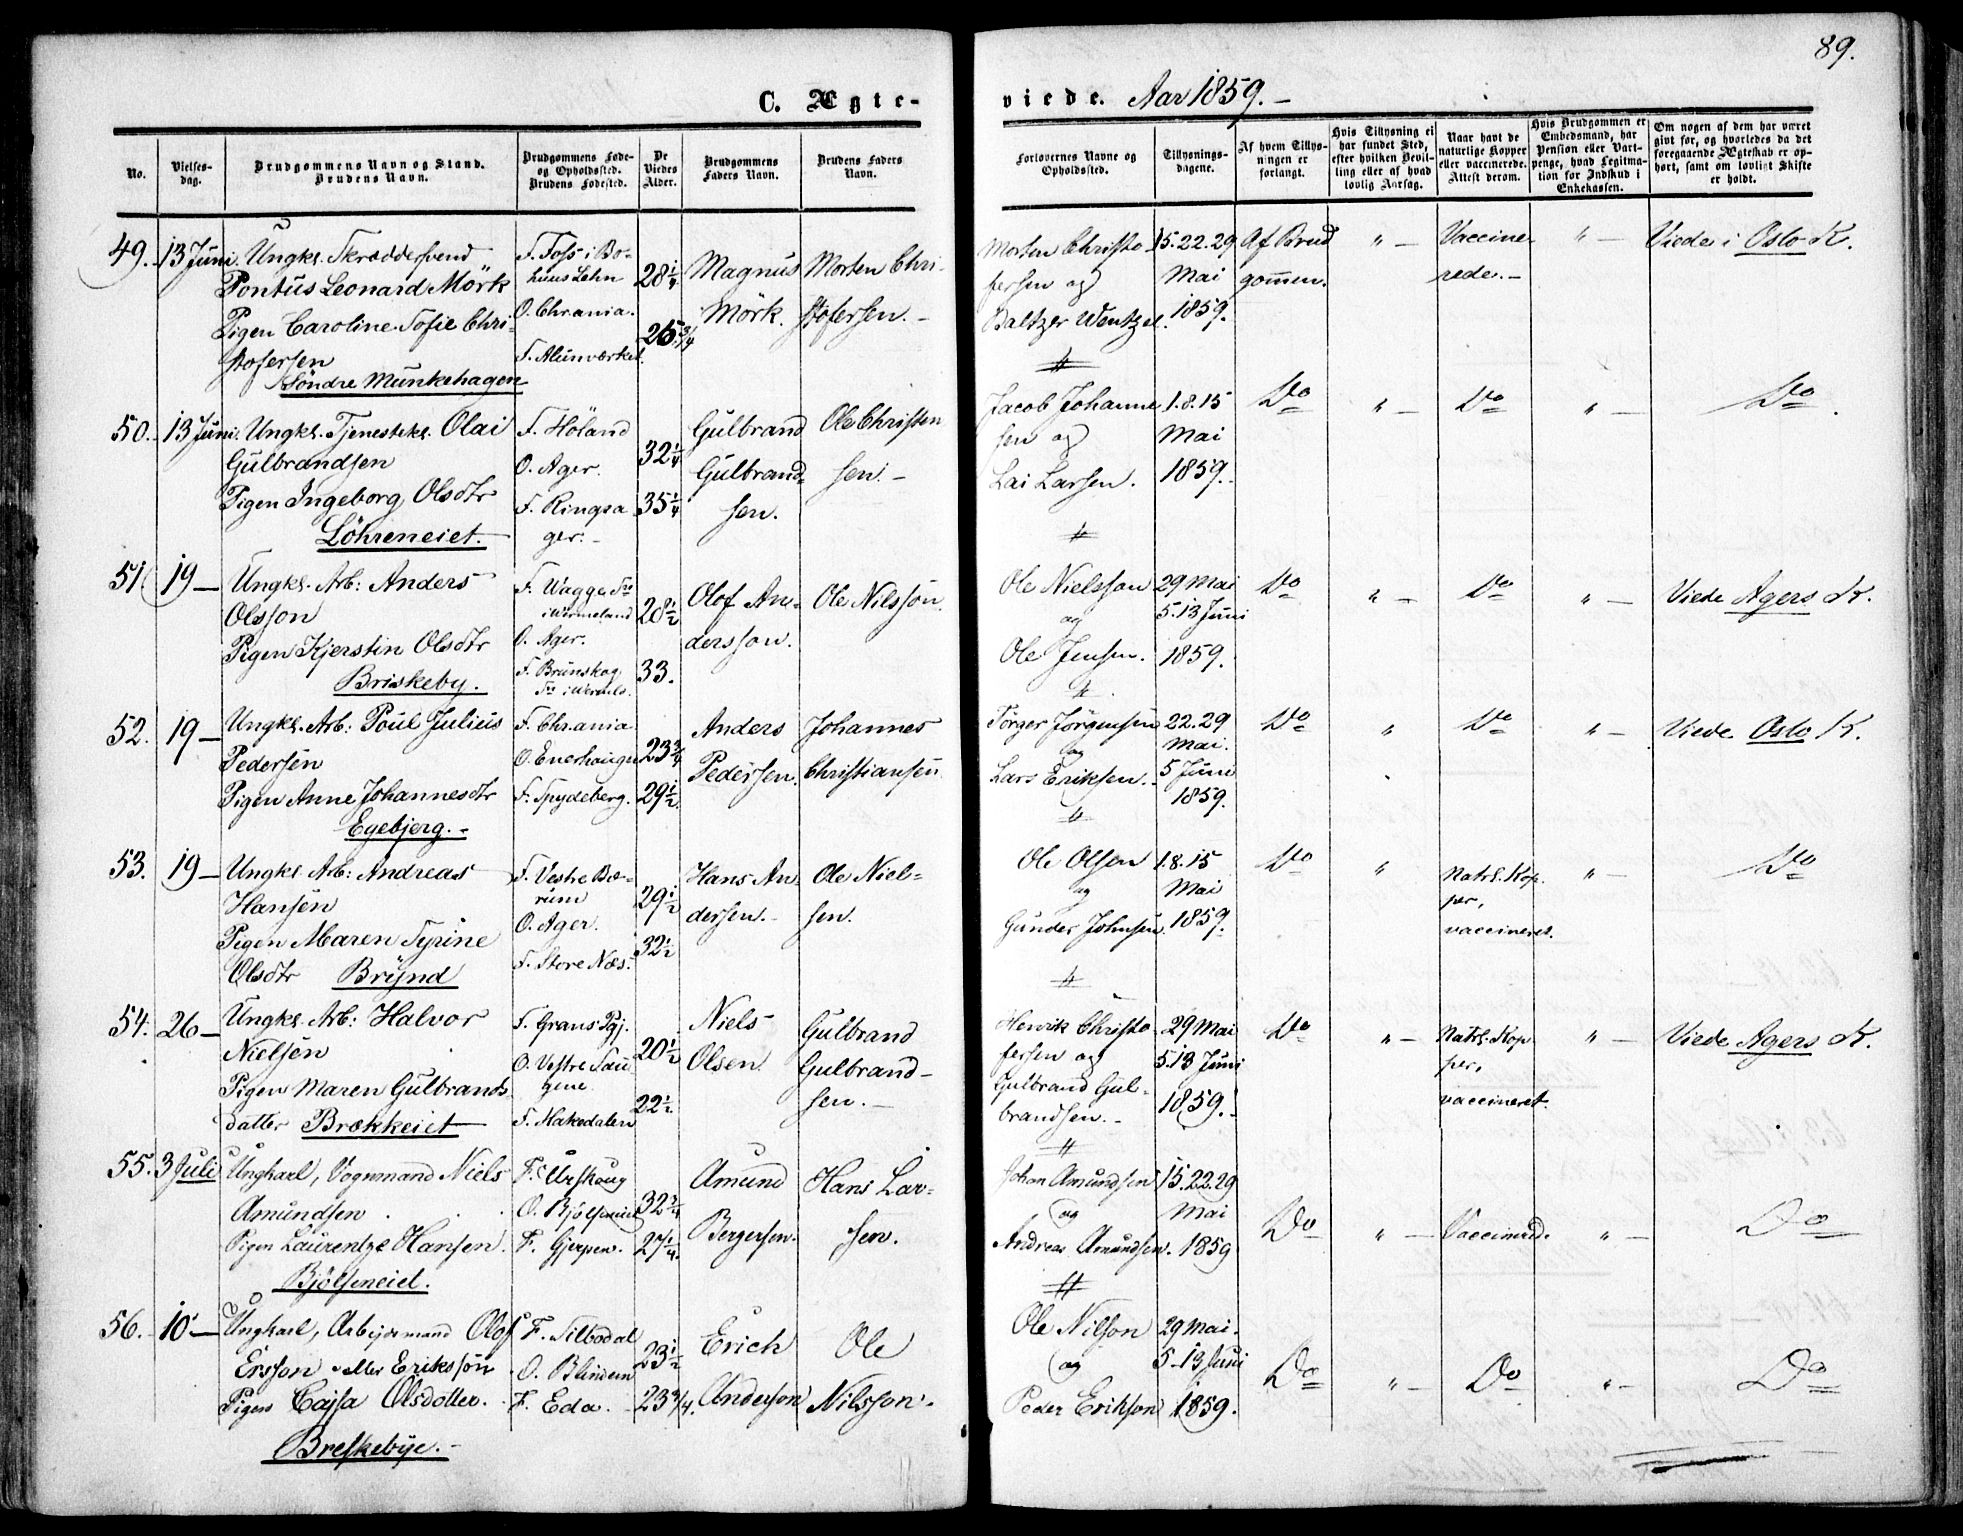 89.
C. Ægte-
viede. Aar 1859.-
No.
Vielses-dag.
Brudgommens Navn og Stand. Brudens Navn.
Brudgommens Føde- og Opholdssted. Brudens Fødested.
De Viedes Alder.
Brudgommens Faders Navn.
Brudens Faders Navn.
Forlovernes Navne og Opholdssted.
Tillysnings-dagene.
Af hvem Tillysningen er forlangt.
Hvis Tillysning ei har fundet Sted, efter hvilken Bevilling eller af hvad lovlig Aarsag.
Naar havt de naturlige Kopper eller vaccinerede. Attest derom.
Hvis Brudgommen er Embedsmand, har Pension eller Vartpenge, hvad Legitimation for Indskud i Enkekassen.
Om nogen af dem har været gift før, og hvorledes da det foregaaende Ægteskab er ophørt, samt om lovligt Skifte er holdt.
49. 13 Juni. Ungkl. Skræddersvend
Pontus Leonard Mörk
Pigen Caroline Sofie Chri-
stofersen
Söndre Munkehagen
F. Foss i Bo-
huus Lehn
O. Chrania.
F. Alunværket.
28 1/4
26 3/4
Magnus
Mörk.
Morten Chri-
stofersen.-
Morten Christo-
fersen og
Baltzer Wentzel.
15. 22. 29
Mai
1859.
Af Brud
gommen.
" -
Vaccine-
rede.-
" -
Viede i Oslo K.
50. 13 Juni. Ungkl. Tjenestekl. Olai
Gulbrandsen
Pigen Ingeborg Olsdtr
Löhreneiet.
F. Höland
O. Ager.
F. Ringsa
ger.-
32 1/4
35 1/4
Gulbrand
Gulbrand-
sen.
Ole Christen
sen.-
Jacob Johanne
sen og
Lai Larsen.
1. 8. 15
Mai
1859.
Do
" -
Do
" -
Do
51. 19- Ungkl. Arb: Anders
Olsson
Pigen Kjerstin Olsdtr
Briskeby.
F. Wagge Sn
i Wermeland
O. Ager.
F. Brunskog
Sn i Wermls.
28 1/2
33.
Olof An-
dersson.
Ole Nilsson.
Ole Nielsson
og
Ole Jensen.
29 Mai
5. 13 Juni
1859.
Do
" -
Do
" -
Viede Agers K.
52. 19- Ungkl. Arb: Poul Julius
Pedersen
Pigen Anne Johannesdtr
Egebjerg.-
F. Chrania
O. Enerhaugen
F. Spydeberg.
23 3/4
29 1/2
Anders
Pedersen.
Johannes
Christiansen
Törger Jörgensen
og
Lars Eriksen.
22. 29
Mai.
5 Juni
1859.
Do
"
Do
" -
Viede Oslo K.
53. 19- Ungkl. Arb: Andreas
Hansen
Pigen Maren Tyrine
Olsdtr Brynd
F. Vestre Bæ-
rum
O. Ager.
F. Store Næs.
29 1/2
32 1/2
Hans An-
dersen.-
Ole Niel-
sen.
Ole Olsen
og
Gunder Johnsen.
1. 8. 15
Mai
1859.
Do
"
Natrl. Kop-
per,
vaccineret.
" -
Do
54. 26- Ungkl. Arb: Halvor
Nielsen
Pigen Maren Gulbrands
datter Brækkeiet
F. Grans Pgj.
O. Vestre Sau
gene.
F. Hakedalen
20 1/2
22 1/2
Niels
Olsen
Gulbrand
Gulbrand-
sen.-
Henrik Christo
fersen og
Gulbrand Gul-
brandsen.-
29 Mai
5. 13 Juni
1859.
Do
" -
Natrl. Kop
per,
vaccineret.
" -
Viede Agers K.
55. 3 Juli Ungkarl, Vognmand Niels
Amundsen
Pigen Laurentze Hansen.
Bjölseneiet.
F. Urskoug
O. Bjölseneiet
F. Gjerpen.
32 3/4
27 1/4.
Amund
Bergersen.
Hans Lar-
sen.
Johan Amundsen
og
Andreas Amundsen.
15. 22. 29
Mai
1859
Do
" -
Vaccinerd.
" -
Do
56. 10- Ungkarl, Arbejdsmand Olof
Ersson eller Eriksson
Pigen Cajsa Olsdotter.
Breskebye.-
F. Silbodal
O. Blindern
F. Eda.
23 1/2
23 3/4.
Erich
Anderson
Ole
Nilsson.
Ole Nilson
og
Peder Erikson
29 Mai.
5-13 Juni
1859.
Do
" -
Do
" -
Do